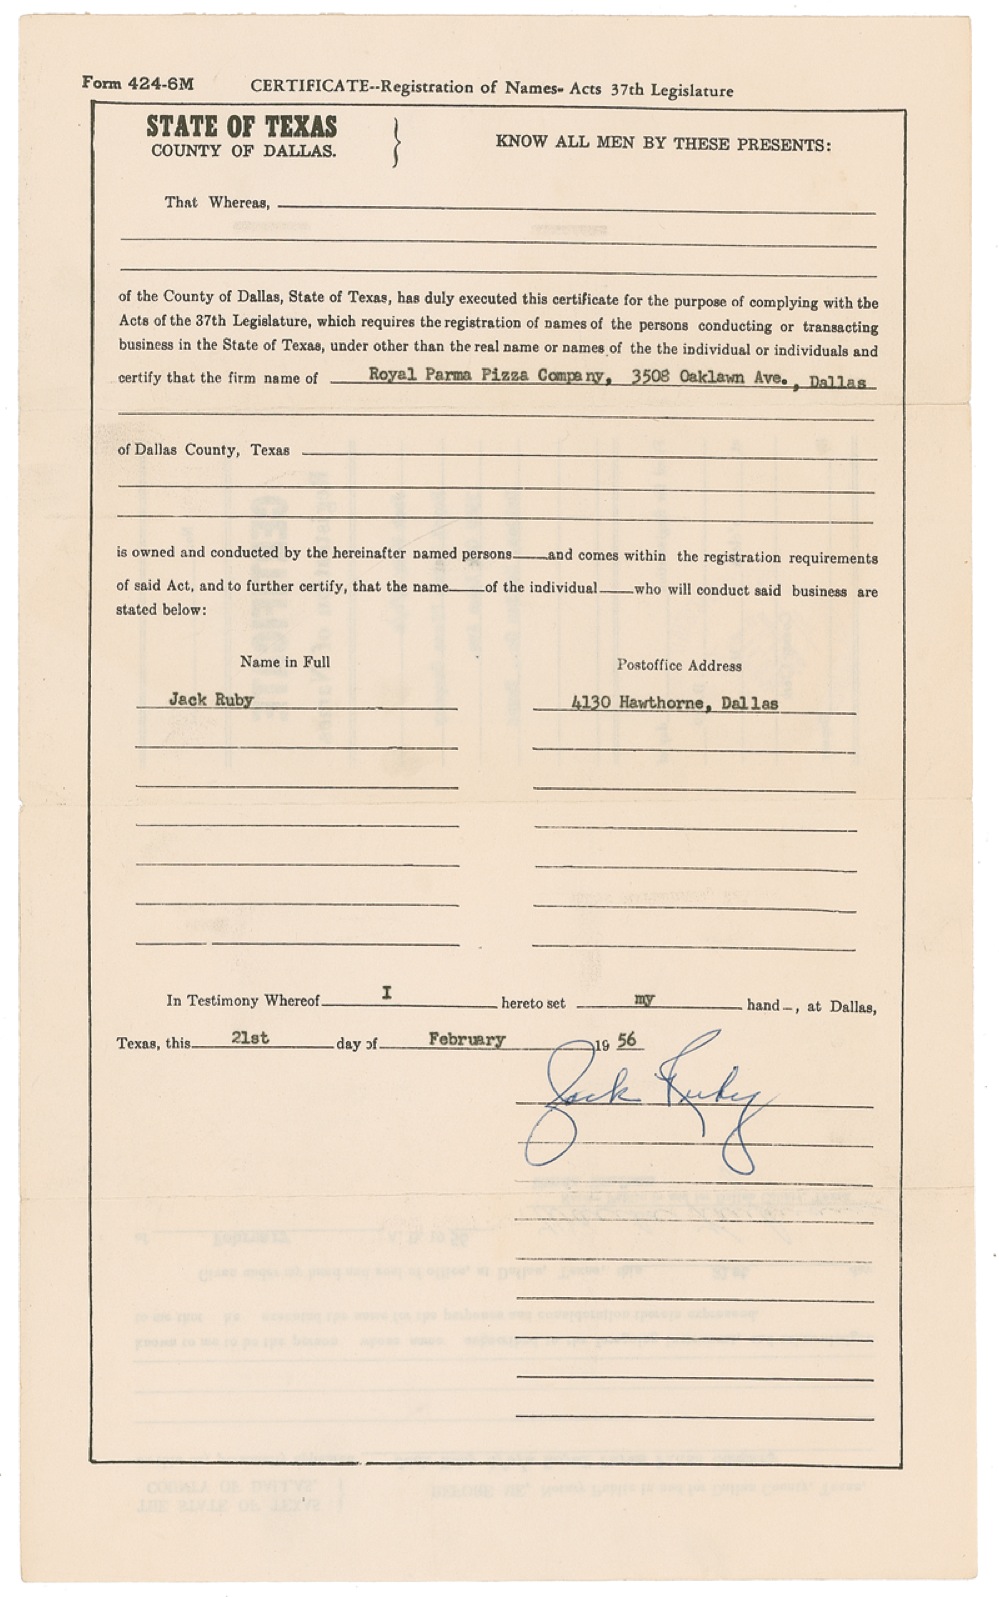 Form 424-6M CERTIFICATE--Registration of Names- Acts 37th Legislature
STATE OF TEXAS
COUNTY OF DALLAS.
}
KNOW ALL MEN BY THESE PRESENTS:
That Whereas,
of the County of Dallas, State of Texas, has duly executed this certificate for the purpose of complying with the
Acts of the 37th Legislature, which requires the registration of names of the persons conducting or transacting
business in the State of Texas, under other than the real name or names of the the individual or individuals and
certify that the firm name of Royal Parma Pizza Company, 3508 Oaklawn Ave., Dallas
of Dallas County, Texas
is owned and conducted by the hereinafter named persons and comes within the registration requirements
of said Act, and to further certify, that the name of the individual who will conduct said business are
stated below:
Name in Full Postoffice Address
Jack Ruby 4130 Hawthorne, Dallas
In Testimony Whereof I hereto set my hand , at Dallas,
Texas, this 21st day of February 19 56
Jack Ruby